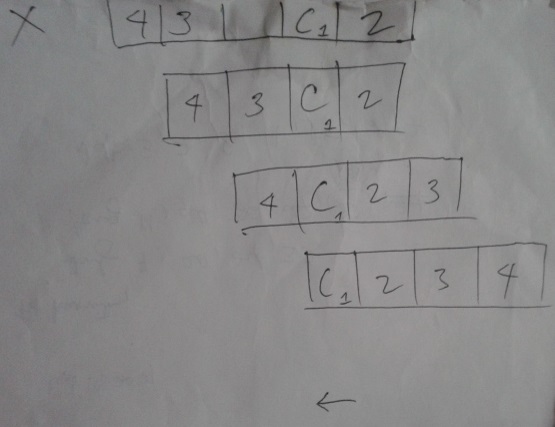 X 4 3 C1 2
4 3 C1 2
4 C1 2 3
C1 2 3 4
←